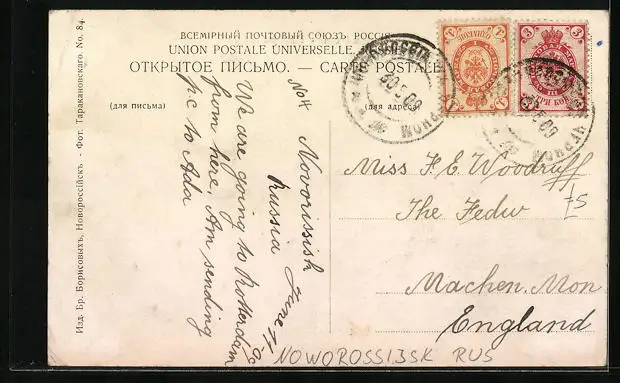 ВСЕМІРНЫЙ ПОЧТОВЫЙ СОЮЗЪ. РОССІЯ
UNION POSTALE UNIVERSELLE.
ОТКРЫТОЕ ПИСЬМО. — CARTE POSTALE
(для письма)
(для адреса)
Изд. Бр. Борисовыхъ, Новороссійскъ - Фот. Таракановскаго. No. 84.
No 4
Novorissish
Russia
June 11
We are going to Rotterdam
from here, Am sending
pc to Ada
Miss F. E. Woodruff
The Fedw
Machen. Mon
England
75
NOWOROSSIJSK RUS
1
3
ТРИ КОП